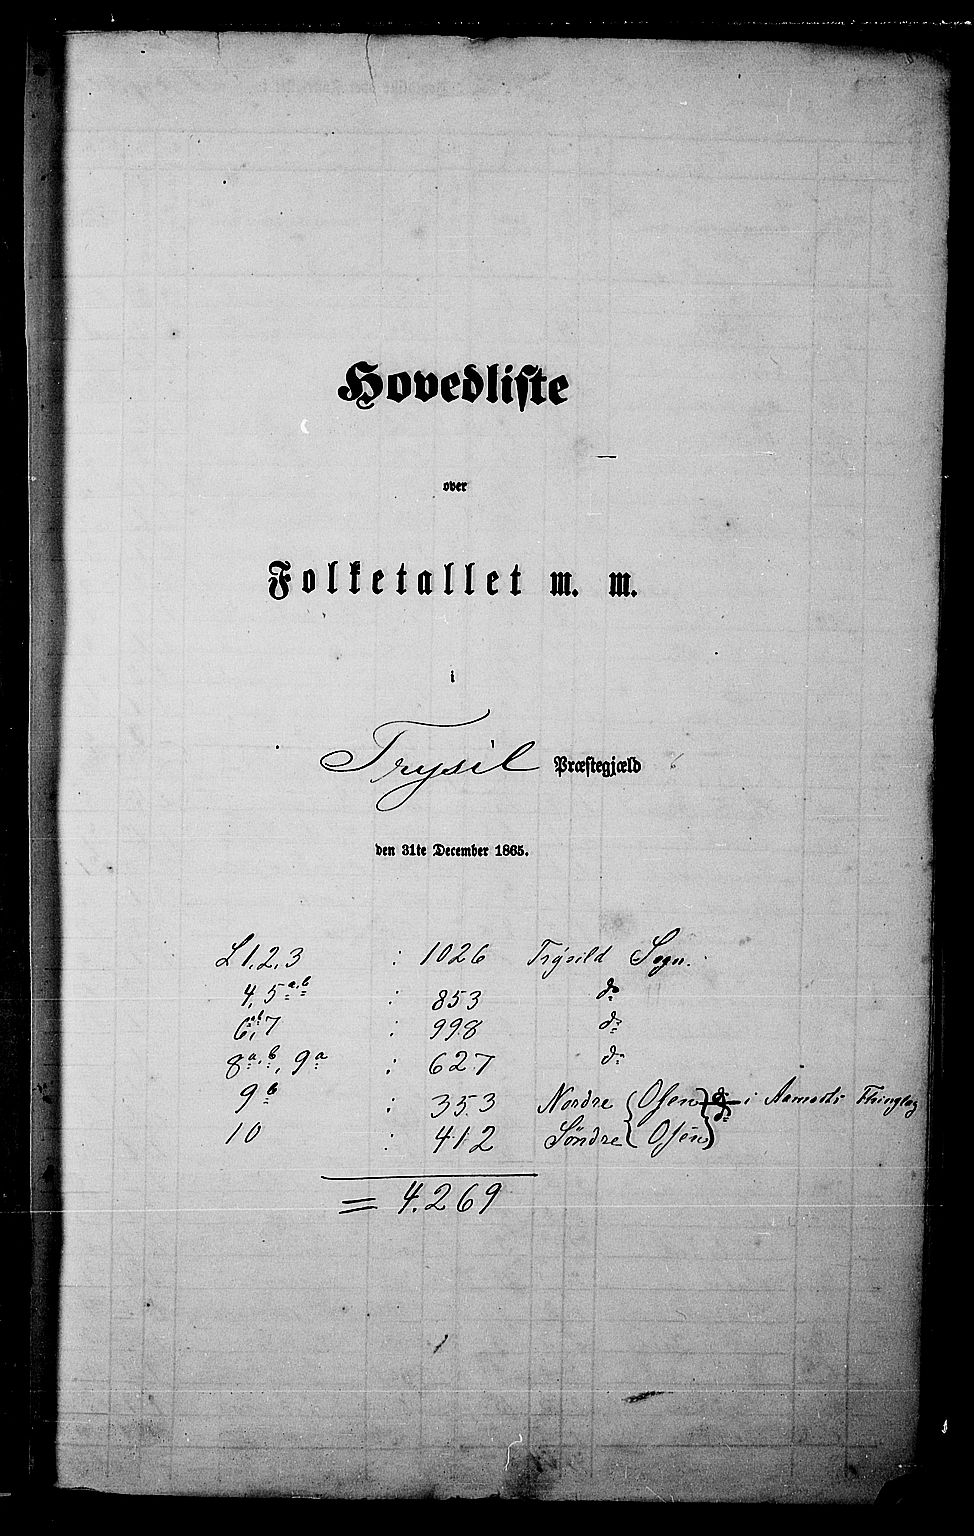 Hovedliste
over
Folketallet m. m.
i
Trysil Præstegjæld
den 31te December 1865.
L 1, 2, 3 : 1026 Trysild Sogn.
4, 5 a, b : 853 do
6 ab, 7 : 998 do
8 a, b, 9 a : 627 do
9 b : 353 Nordre { Osen } do i Aamodts Thinglag
10 : 412 Søndre { Osen } do
= 4.269